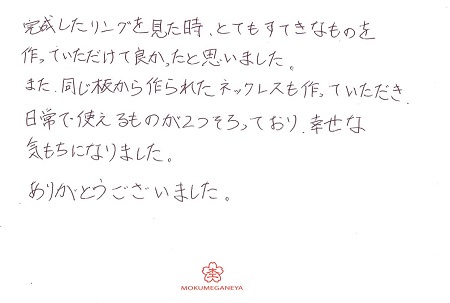 完成したリングを見た時、とてもすてきなものを
作っていただけて良かったと思いました。
また、同じ板から作られたネックレスも作っていただき、
日常で使えるものが2つそろっており、幸せな
気もちになりました。
ありがとうございました。
MOKUMEGANEYA